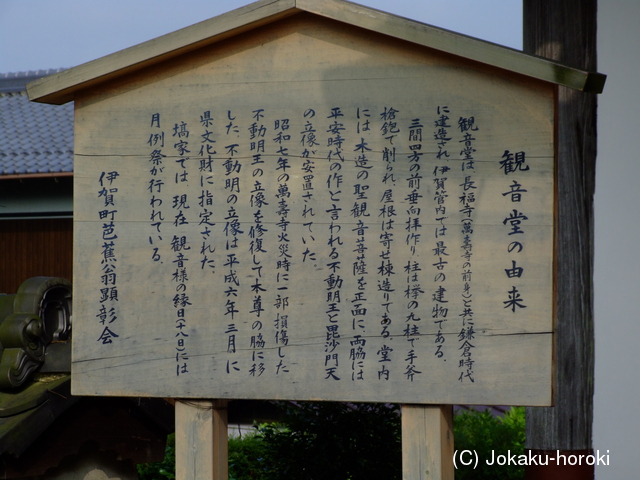 観音堂の由来
観音堂は、長福寺(萬壽寺の前身)と共に鎌倉時代
に建造され、伊賀管内では最古の建物である。
三間四方の前垂向拝作り、柱は欅の丸柱で手斧
槍鉋で削られ、屋根は寄せ棟造りである。堂内
には、木造の聖観音菩薩を正面に、両脇には
平安時代の作と言われる不動明王と毘沙門天
の立像が安置されていた。
昭和七年の萬壽寺火災時に一部損傷した
不動明王の立像を修復して本尊の脇に移
した。不動明の立像は平成六年三月に
県文化財に指定された。
塙家では、現在、観音様の縁日(十八日)には
月例祭が行われている。
伊賀町芭蕉翁顕彰会
(C) Jokaku-horoki